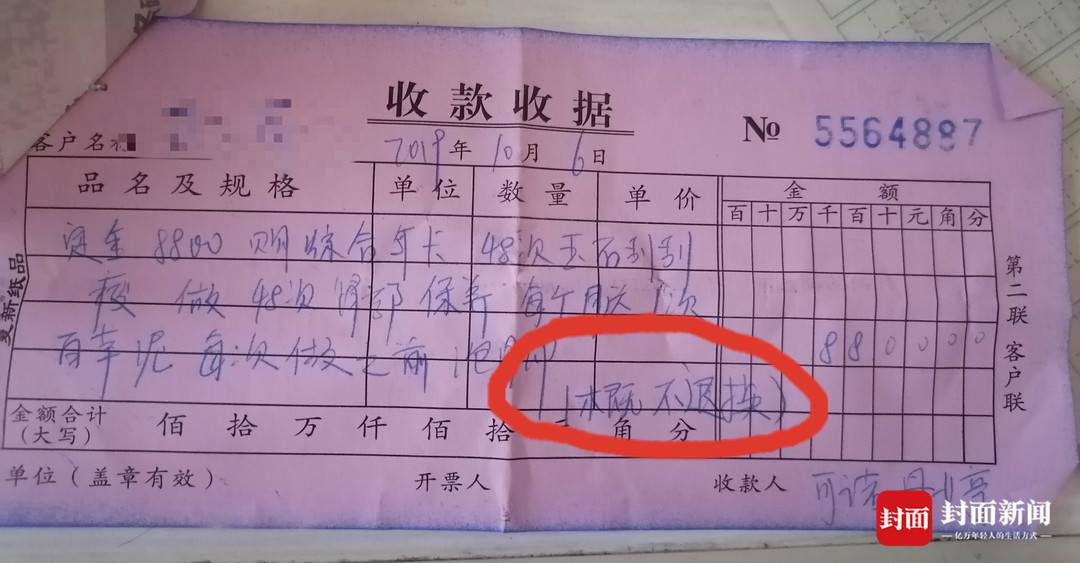 收款收据
客户名称
2019年10月6日
№ 5564887
品名及规格 单位 数量 单价 金额
百十万千百十元角分
定金 8800 购综合年卡 48次玉石刮刮
痧 做 48次 臀部保养 每个月送1次
百草泥 每次做之前泡脚
880000
(本既不退换)
金额合计
(大写) 佰 拾 万 仟 佰 拾 角 分
单位(盖章有效) 开票人 收款人
第二联 客户联
新纸品
封面 封面新闻
亿万年轻人的生活方式